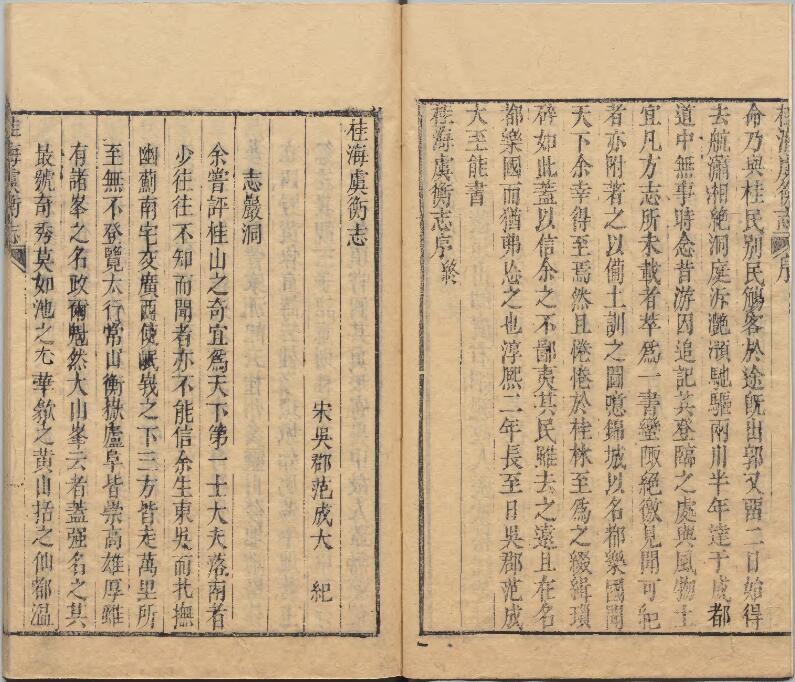 桂海虞衡志 序
命乃與桂民別民觴客於途旣出郭又留二日始得
去航瀟湘絶洞庭泝灔澦馳驅兩川半年達于成都
道中無事時念昔游因追記其登臨之處與風物土
宜凡方志所未載者萃爲一書蠻陬絶徼見聞可紀
者亦附著之以備土訓之圖噫錦城以名都樂國聞
天下余幸得至焉然且惓惓於桂林至爲之綴緝瑣
碎如此蓋以信余之不鄙夷其民雖去之遠且在名
都樂國而猶弗忘之也淳熙二年長至日吳郡范成
大至能書
桂海虞衡志序終
桂海虞衡志
宋吳郡范成大 紀
志巖洞
余嘗評桂山之奇宜爲天下第一士大夫落南者
少往往不知而聞者亦不能信余生東吳而北撫
幽薊南宅交廣西使岷峩之下三方皆走萬里所
至無不登覽太行常山衡嶽廬阜皆崇高雄厚雖
有諸峯之名政爾魁然大山峯云者蓋强名之其
最號奇秀莫如池之九華歙之黃山括之仙都溫
桂海虞衡志